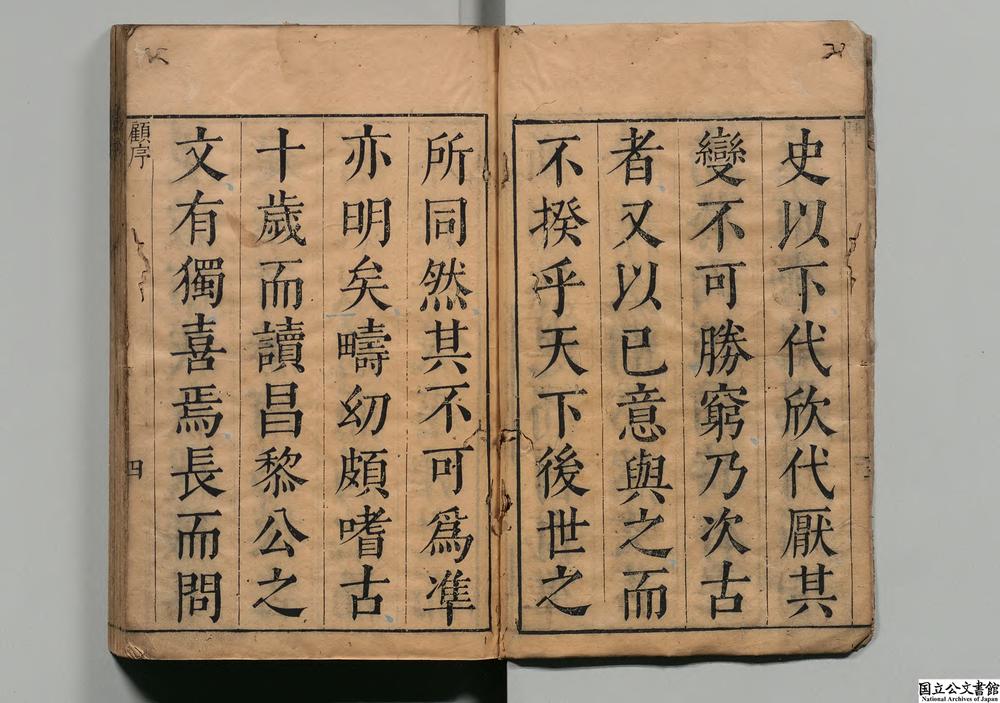 史以下代欣代厭其
變不可勝窮乃次古
者又以已意與之而
不揆乎天下後世之
所同然其不可爲準
亦明矣疇幼頗嗜古
十歲而讀昌黎公之
文有獨喜焉長而問
顧序
四
国立公文書館
National Archives of Japan